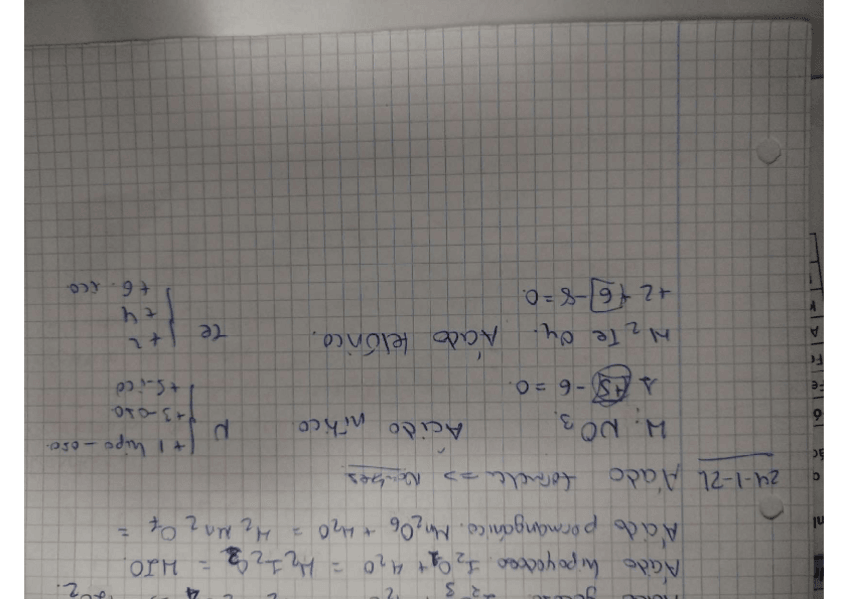 Ácido hipoyodoso. I2O1 + H2O = H2I2O2 = HIO
Ácido permangánico. Mn2O6 + H2O = H2Mn2O7 =
24-1-22 Ácido fórmula =>
H NO3. Ácido nítrico N +1 hipo-oso
+3-oso
+5-ico
1 +5 -6 = 0.
H2TeO4. Ácido telúrico. Te +2
+4
+6 ico
+2 +6 -8 = 0.